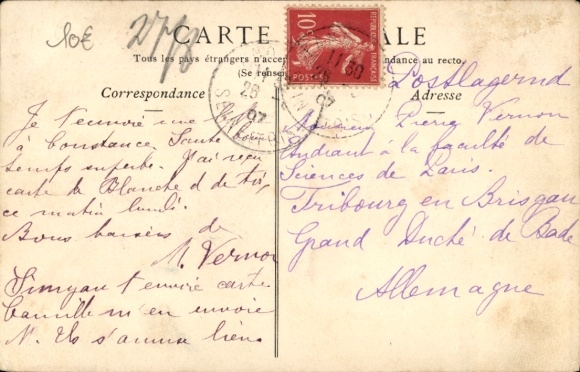 10€
27/8
CARTE POSTALE
Tous les pays étrangers n'accep
dance au recto.
(Se rensei
Correspondance
Adresse
RÉPUBLIQUE FRANÇAISE
10
POSTES
11 30
26
07
SEINE
Je t'envoie une
à Constance Santé
temps superbe. J'ai reçu
carte de Blanche & de toi
ce matin lundi.
Bons baisers de
M. Vernon
t'envoie carte
Camille m'en envoie
N. Ils s'amuse bien.
Postlagernd
Monsieur Pierre Vernon
Etudiant à la faculté de
Sciences de Paris.
Fribourg en Brisgau
Grand Duché de Bade
Allemagne